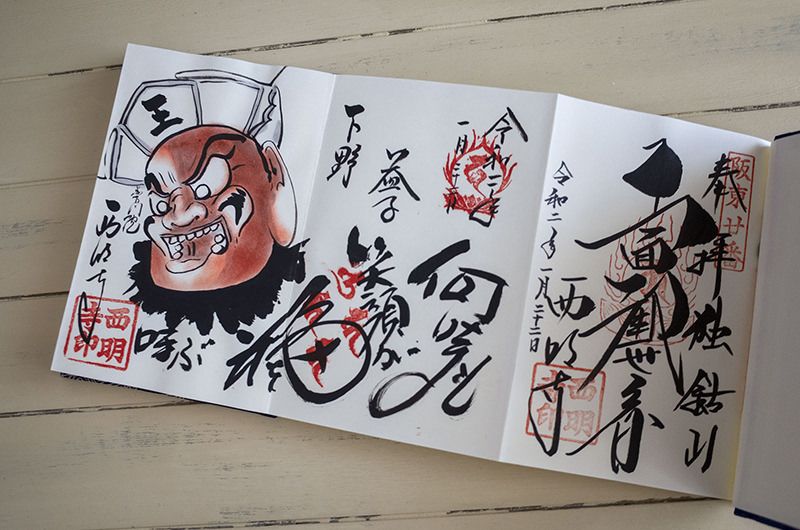 阪東廿番
奉拝 独鈷山
面観世音
令和二年一月二十二日
西明寺
西明寺印
令和二年
益子
下野
笑顔が
福
呼ぶ
王
西明寺
西明寺印